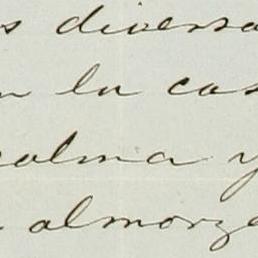 s diversa
n la cas
calma y
almorza